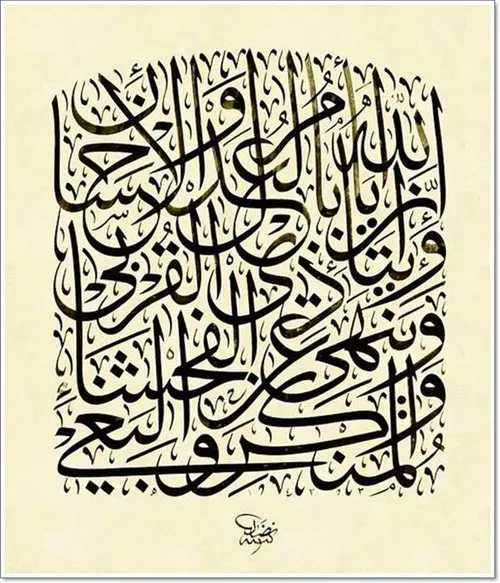 إِنَّ اللَّهَ يَأْمُرُ بِالْعَدْلِ وَالْإِحْسَانِ
وَإِيتَاءِ ذِي الْقُرْبَىٰ
وَيَنْهَىٰ عَنِ الْفَحْشَاءِ
وَالْمُنكَرِ وَالْبَغْيِ